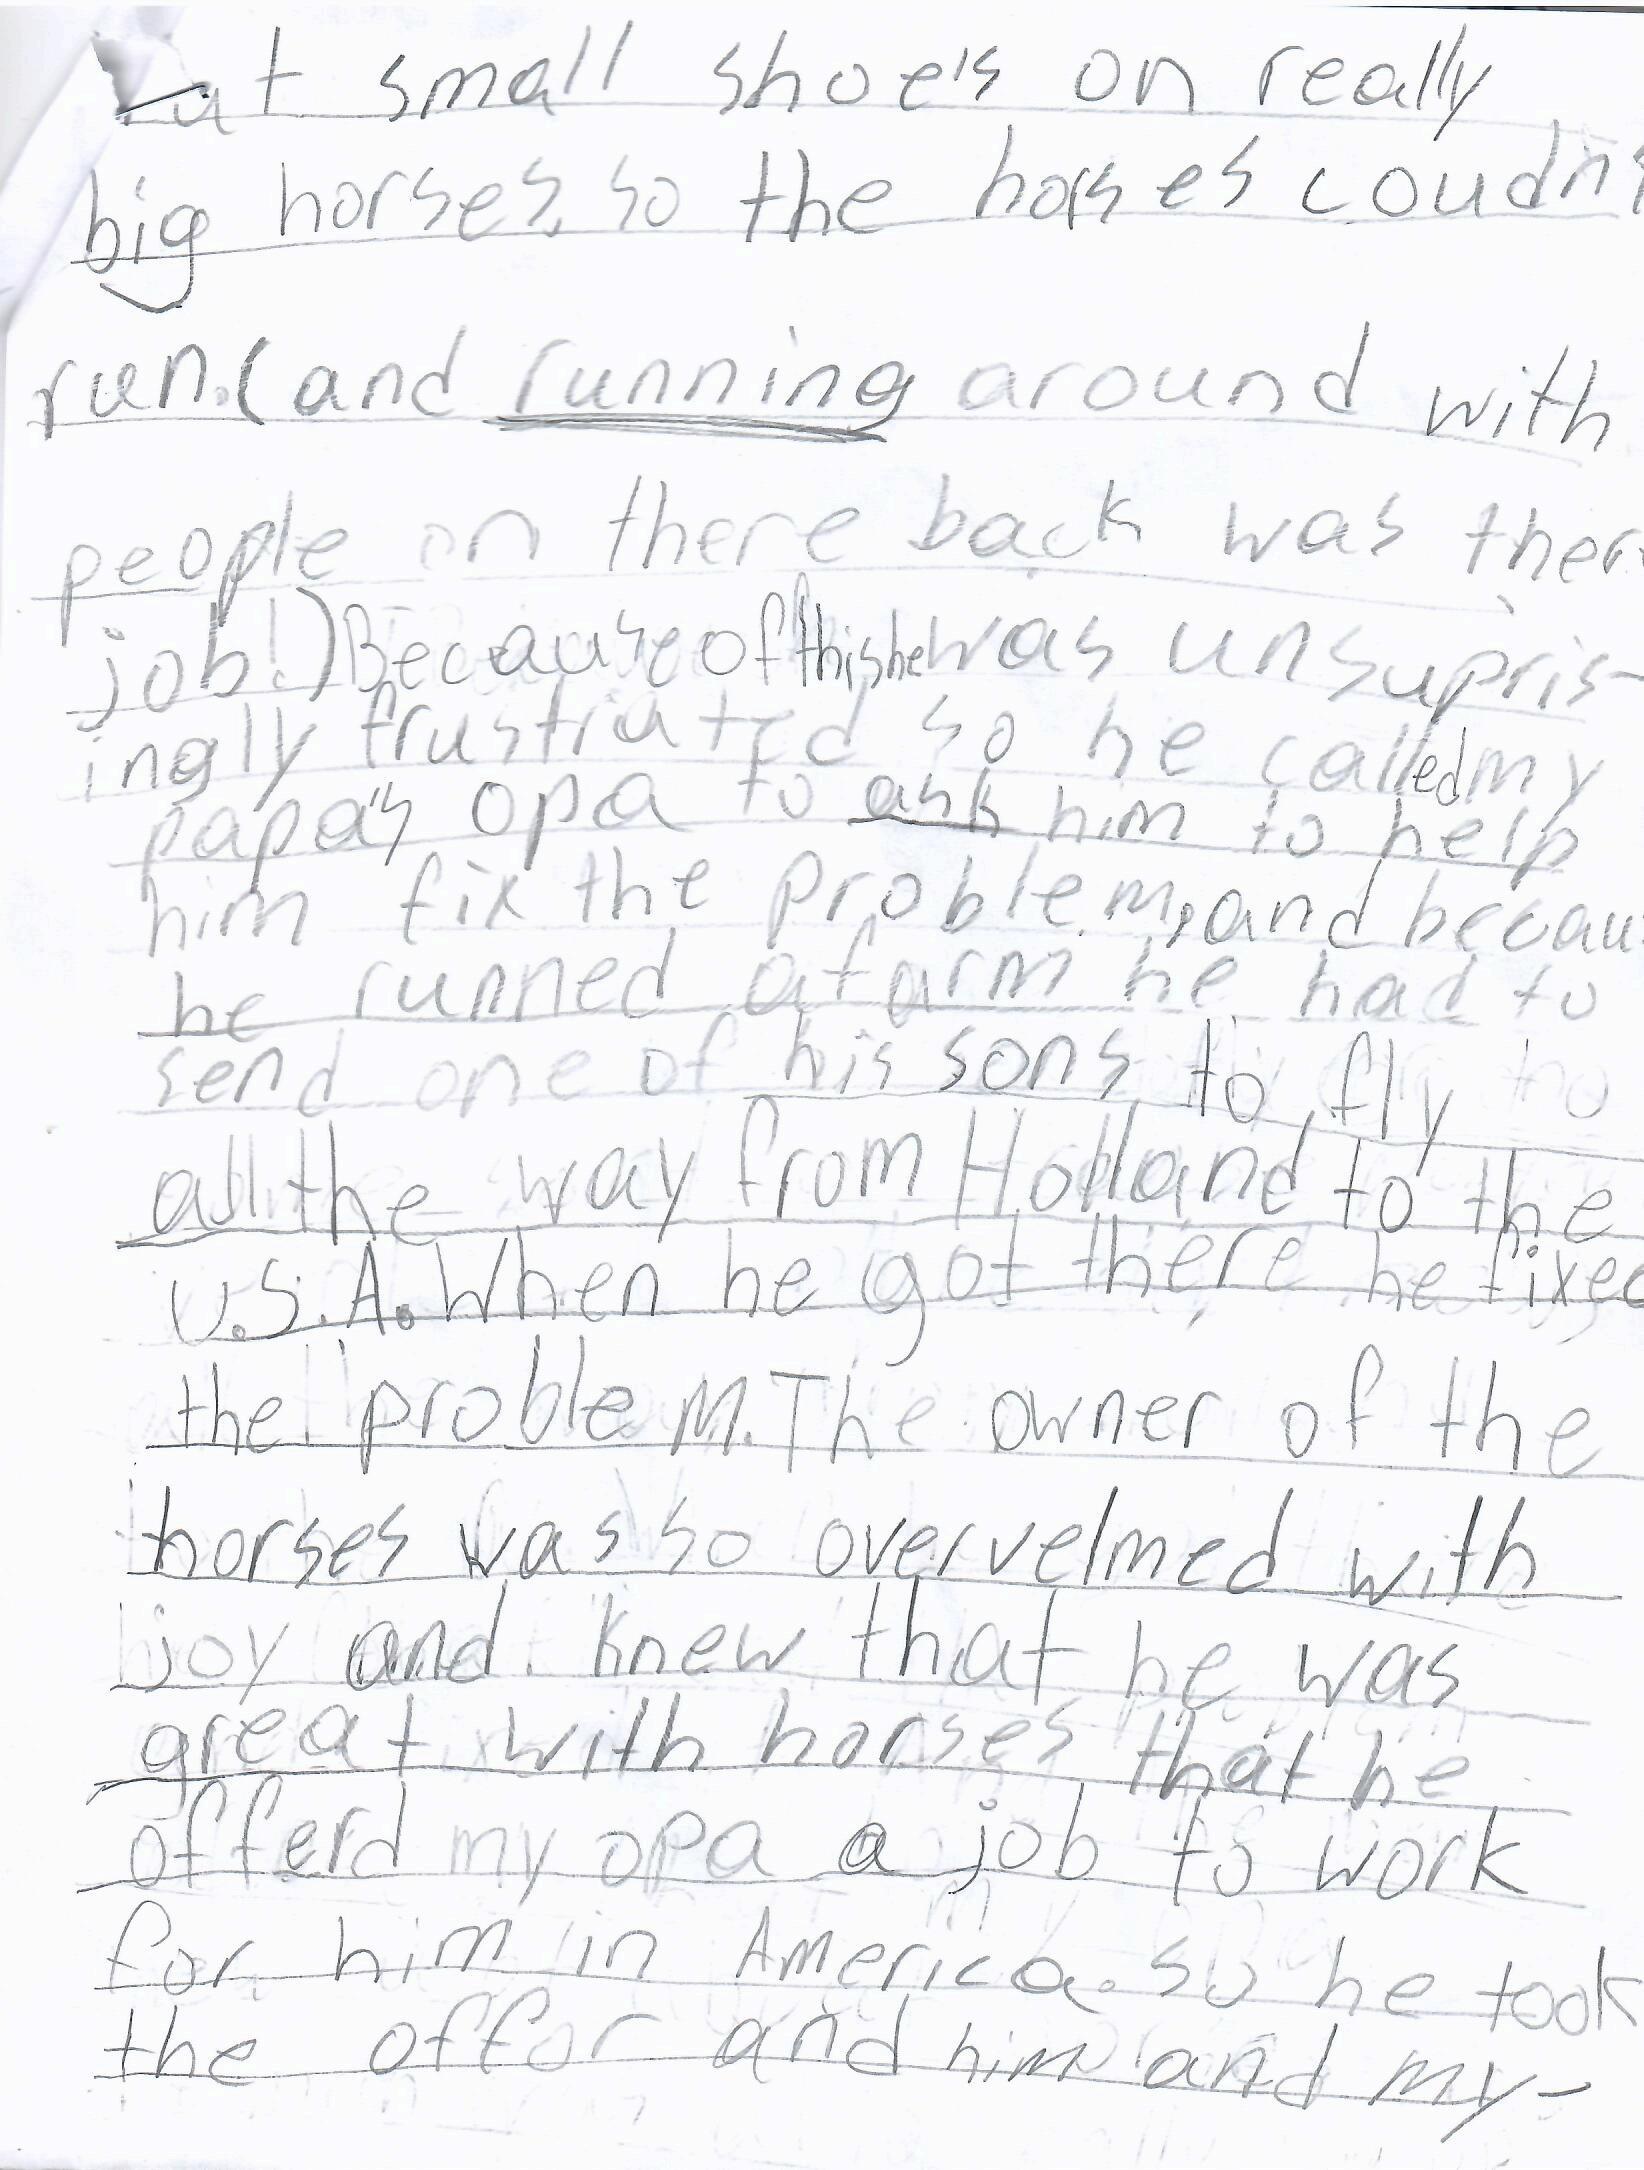 at small shoe's on really
big horses, so the horses coudn't
run. (and running around with
people on there back was there
job!) Because of this he was unsupris-
ingly frustrated so he called my
papa's opa to ask him to help
him fix the problem, and becau
he runned a farm he had to
send one of his sons to fly to
all the way from Holland to the
U.S.A. When he got there he fixed
the problem. The owner of the
horses was so overvelmed with
joy and knew that he was
great with horses that he
offerd my opa a job to work
for him in America. so he took
the offor and him and my-